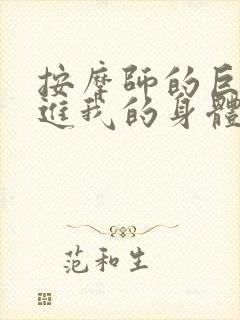 按摩師的巨
進我的身體
范和生